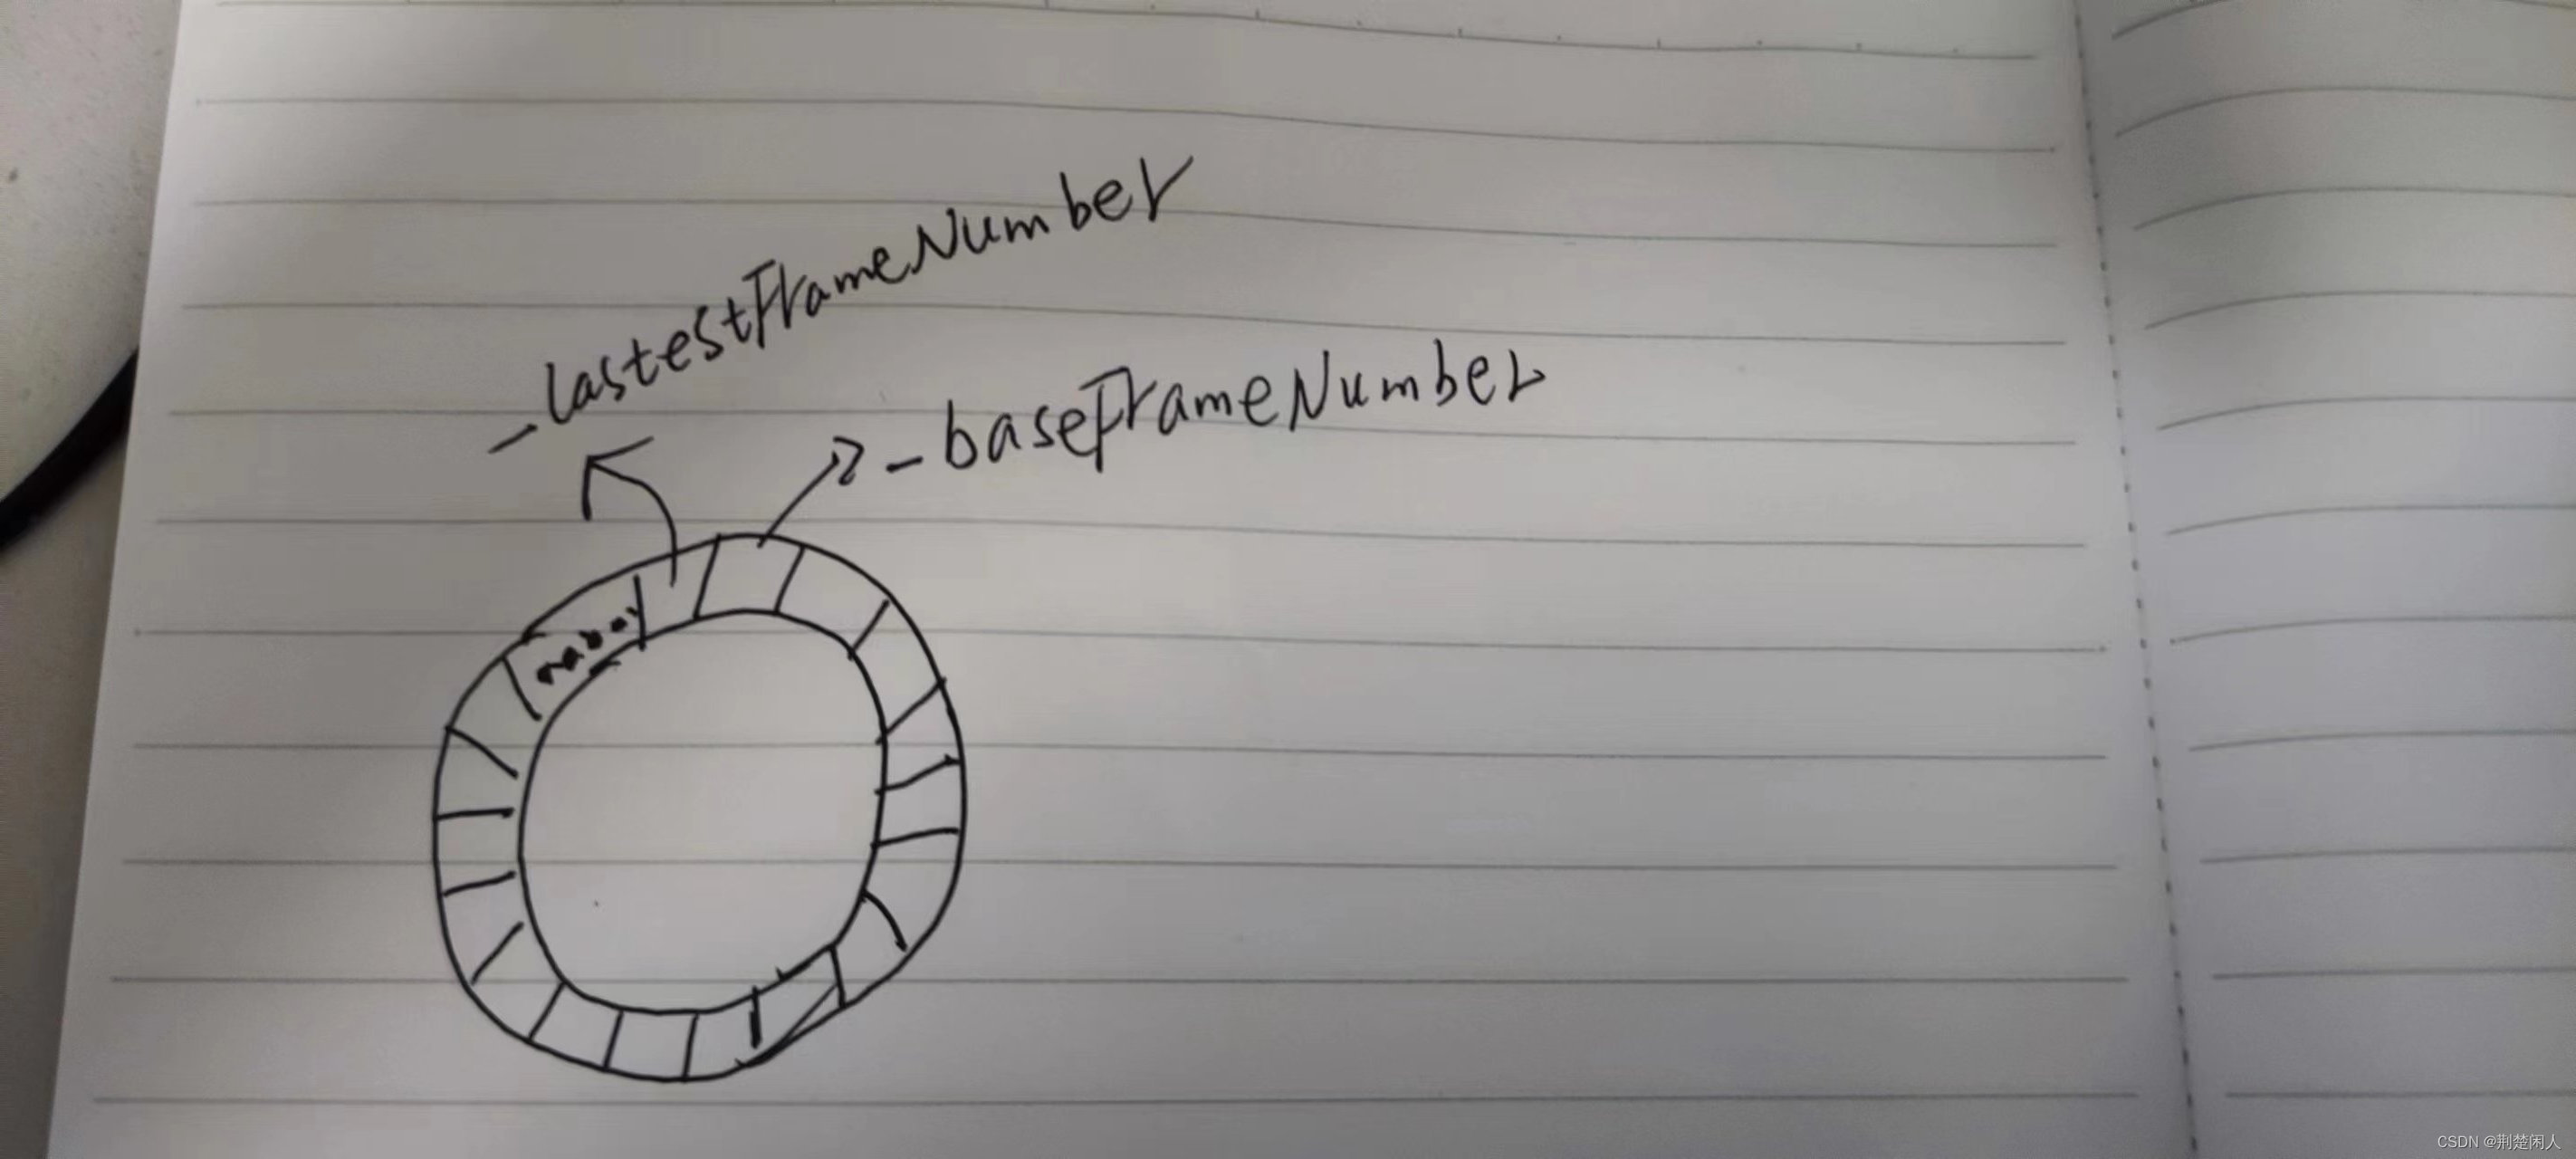 _lastestFrameNumber
_baseFrameNumber
CSDN @荆楚闲人